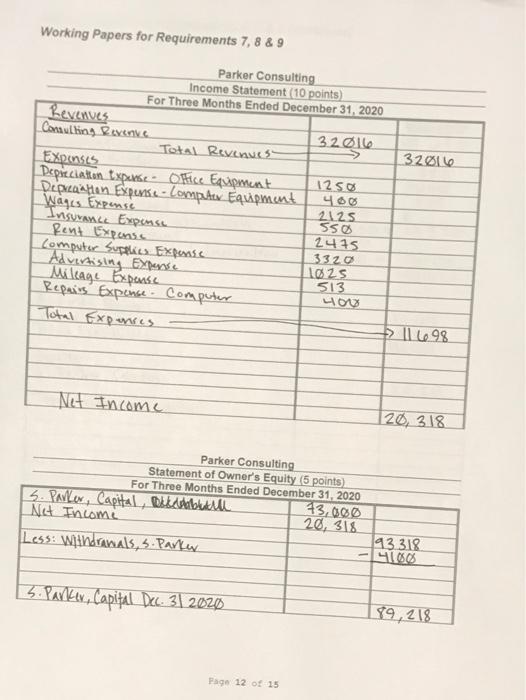 Working Papers for Requirements 7, 8 & 9
Parker Consulting
Income Statement (10 points)
For Three Months Ended December 31, 2020
Revenues
Consulting Revenue 32016
Total Revenues 32016
Expenses
Depreciation Expense - Office Equipment 1250
Depreciation Expense - Computer Equipment 400
Wages Expense 2125
Insurance Expense 550
Rent Expense 2475
Computer Supplies Expense 3320
Advertising Expense 1025
Mileage Expense 513
Repairs Expense - Computer 400
Total Expenses 11698
Net Income 20,318
Parker Consulting
Statement of Owner's Equity (5 points)
For Three Months Ended December 31, 2020
S. Parker, Capital, 73,000
Net Income 20,318
93318
Less: Withdrawals, S. Parker - 4100
S. Parker, Capital Dec. 31 2020 89,218
Page 12 of 15